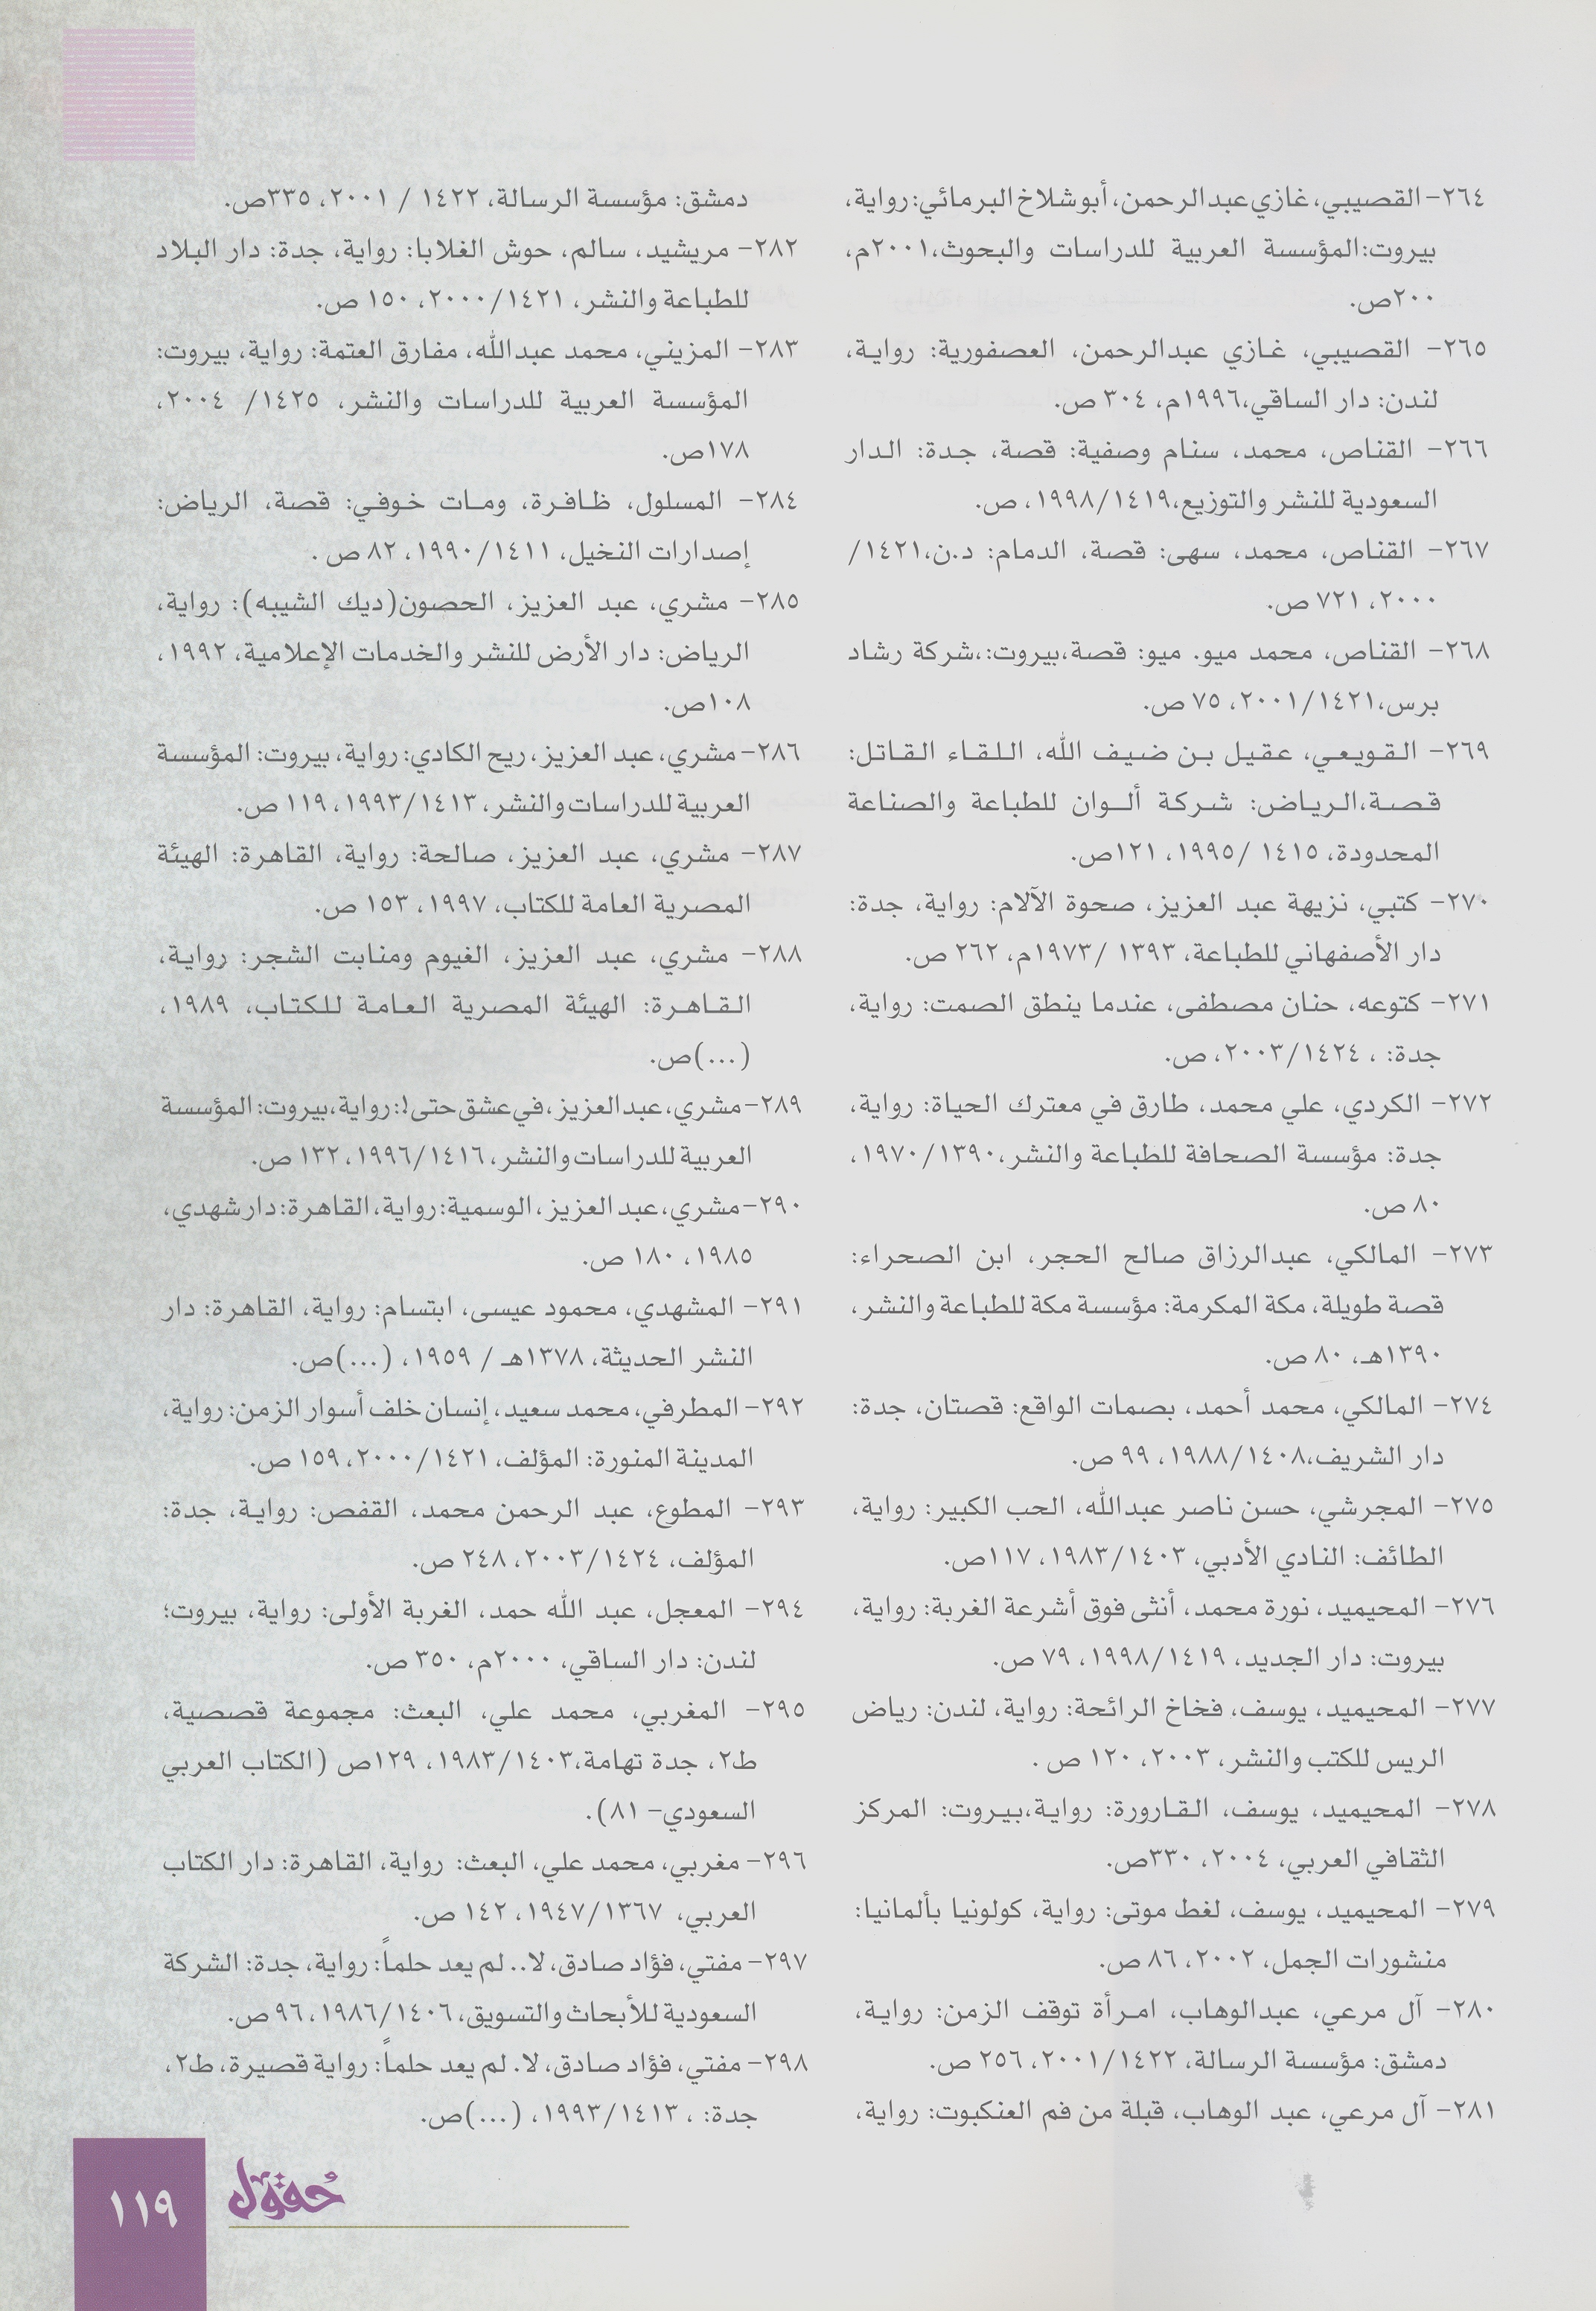 ٢٦٤- القصيبي، غازي عبدالرحمن، أبو شلاخ البرمائي: رواية،
بيروت:المؤسسة العربية للدراسات والبحوث،٢٠٠١م،
٢٠٠ص.
٢٦٥- القصيبي، غازي عبدالرحمن، العصفورية: رواية،
لندن: دار الساقي،١٩٩٦م، ٣٠٤ ص.
٢٦٦- القناص، محمد، سنام وصفية: قصة، جدة: الدار
السعودية للنشر والتوزيع،١٩٩٨/١٤١٩، ص.
٢٦٧- القناص، محمد، سهى: قصة، الدمام: د.ن،١٤٢١/
٢٠٠٠، ٧٢١ ص.
٢٦٨- القناص، محمد ميو. ميو: قصة،بيروت:،شركة رشاد
برس،٢٠٠١/١٤٢١، ٧٥ ص.
٢٦٩- القويعي، عقيل بن ضيف الله، اللقاء القاتل:
قصة،الرياض: شركة ألوان للطباعة والصناعة
المحدودة، ١٤١٥ /١٩٩٥، ١٢١ص.
٢٧٠- كتبي، نزيهة عبد العزيز، صحوة الآلام: رواية، جدة:
دار الأصفهاني للطباعة، ١٣٩٣ /١٩٧٣م، ٢٦٢ ص.
٢٧١- كتوعه، حنان مصطفى، عندما ينطق الصمت: رواية،
جدة: ، ٢٠٠٣/١٤٢٤، ص.
٢٧٢- الكردي، علي محمد، طارق في معترك الحياة: رواية،
جدة: مؤسسة الصحافة للطباعة والنشر،١٩٧٠/١٣٩٠،
٨٠ ص.
٢٧٣- المالكي، عبدالرزاق صالح الحجر، ابن الصحراء:
قصة طويلة، مكة المكرمة: مؤسسة مكة للطباعة والنشر،
١٣٩٠هـ، ٨٠ ص.
٢٧٤- المالكي، محمد أحمد، بصمات الواقع: قصتان، جدة:
دار الشريف،١٩٨٨/١٤٠٨، ٩٩ ص.
٢٧٥- المجرشي، حسن ناصر عبدالله، الحب الكبير: رواية،
الطائف: النادي الأدبي، ١٩٨٣/١٤٠٣، ١١٧ص.
٢٧٦- المحيميد، نورة محمد، أنثى فوق أشرعة الغربة: رواية،
بيروت: دار الجديد، ١٩٩٨/١٤١٩، ٧٩ ص.
٢٧٧- المحيميد، يوسف، فخاخ الرائحة: رواية، لندن: رياض
الريس للكتب والنشر، ٢٠٠٣، ١٢٠ ص .
٢٧٨- المحيميد، يوسف، القارورة: رواية،بيروت: المركز
الثقافي العربي، ٢٠٠٤، ٣٣٠ص.
٢٧٩- المحيميد، يوسف، لغط موتى: رواية، كولونيا بألمانيا:
منشورات الجمل، ٢٠٠٢، ٨٦ ص.
٢٨٠- آل مرعي، عبدالوهاب، امرأة توقف الزمن: رواية،
دمشق: مؤسسة الرسالة، ٢٠٠١/١٤٢٢، ٢٥٦ ص.
٢٨١- آل مرعي، عبد الوهاب، قبلة من فم العنكبوت: رواية،
دمشق: مؤسسة الرسالة، ١٤٢٢ / ٢٠٠١، ٣٣٥ص.
٢٨٢- مريشيد، سالم، حوش الغلابا: رواية، جدة: دار البلاد
للطباعة والنشر، ٢٠٠٠/١٤٢١، ١٥٠ ص.
٢٨٣- المزيني، محمد عبدالله، مفارق العتمة: رواية، بيروت:
المؤسسة العربية للدراسات والنشر، ١٤٢٥/ ٢٠٠٤،
١٧٨ص.
٢٨٤- المسلول، ظافرة، ومات خوفي: قصة، الرياض:
إصدارات النخيل، ١٩٩٠/١٤١١، ٨٢ ص .
٢٨٥- مشري، عبد العزيز، الحصون(ديك الشيبه): رواية،
الرياض: دار الأرض للنشر والخدمات الإعلامية، ١٩٩٢،
١٠٨ص.
٢٨٦- مشري، عبد العزيز، ريح الكادي: رواية، بيروت: المؤسسة
العربية للدراسات والنشر، ١٩٩٣/١٤١٣، ١١٩ ص.
٢٨٧- مشري، عبد العزيز، صالحة: رواية، القاهرة: الهيئة
المصرية العامة للكتاب، ١٩٩٧، ١٥٣ ص.
٢٨٨- مشري، عبد العزيز، الغيوم ومنابت الشجر: رواية،
القاهرة: الهيئة المصرية العامة للكتاب، ١٩٨٩،
(...)ص.
٢٨٩- مشري، عبد العزيز، في عشق حتى!: رواية، بيروت: المؤسسة
العربية للدراسات والنشر، ١٩٩٦/١٤١٦، ١٣٢ ص.
٢٩٠- مشري، عبد العزيز، الوسمية: رواية، القاهرة: دار شهدي،
١٩٨٥، ١٨٠ ص.
٢٩١- المشهدي، محمود عيسى، ابتسام: رواية، القاهرة: دار
النشر الحديثة، ١٣٧٨هـ / ١٩٥٩، (...)ص.
٢٩٢- المطرفي، محمد سعيد، إنسان خلف أسوار الزمن: رواية،
المدينة المنورة: المؤلف، ٢٠٠٠/١٤٢١، ١٥٩ ص.
٢٩٣- المطوع، عبد الرحمن محمد، القفص: رواية، جدة:
المؤلف، ٢٠٠٣/١٤٢٤، ٢٤٨ ص.
٢٩٤- المعجل، عبد الله حمد، الغربة الأولى: رواية، بيروت؛
لندن: دار الساقي، ٢٠٠٠م، ٣٥٠ ص.
٢٩٥- المغربي، محمد علي، البعث: مجموعة قصصية،
ط٢، جدة تهامة،١٩٨٣/١٤٠٣، ١٢٩ص (الكتاب العربي
السعودي- ٨١).
٢٩٦- مغربي، محمد علي، البعث: رواية، القاهرة: دار الكتاب
العربي، ١٩٤٧/١٣٦٧، ١٤٢ ص.
٢٩٧- مفتي، فؤاد صادق، لا.. لم يعد حلماً: رواية، جدة: الشركة
السعودية للأبحاث والتسويق، ١٩٨٦/١٤٠٦، ٩٦ ص.
٢٩٨- مفتي، فؤاد صادق، لا. لم يعد حلماً: رواية قصيرة، ط٢،
جدة: ، ١٩٩٣/١٤١٣، (...)ص.
حُقُول
١١٩